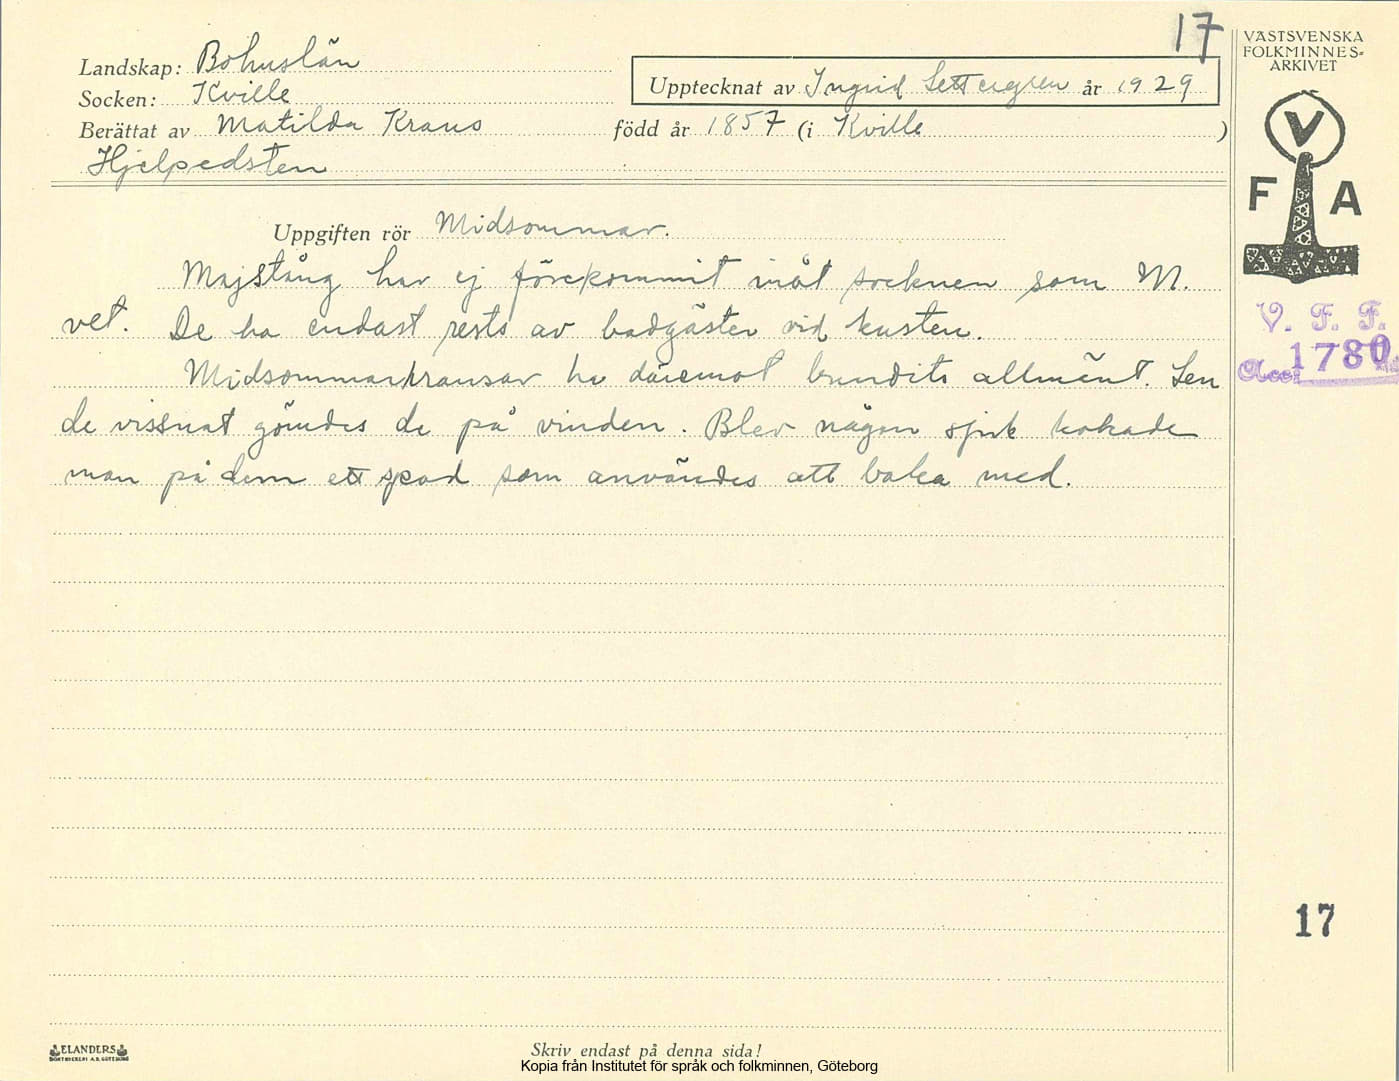 17
Landskap: Bohuslän
Socken: Kville
Upptecknat av Ingrid Settergren år 1929
Berättat av Matilda Kraus född år 1857 (i Kville )
Hjelpedsten
Uppgiften rör Midsommar.
Majstång har ej förekommit inåt socknen som M.
vet. De ha endast rests av badgäster vid kusten.
Midsommarkransar ha däremot bundits allmänt. Sen
de vissnat gömdes de på vinden. Blev någon sjuk kokade
man på dem ett spad som användes att baka med.
VÄSTSVENSKA
FOLKMINNES-
ARKIVET
V
F A
V. F. F.
Acc. 1780
17
ELANDERS
BOKTRYCKERI A.B. GÖTEBORG
Skriv endast på denna sida!
Kopia från Institutet för språk och folkminnen, Göteborg